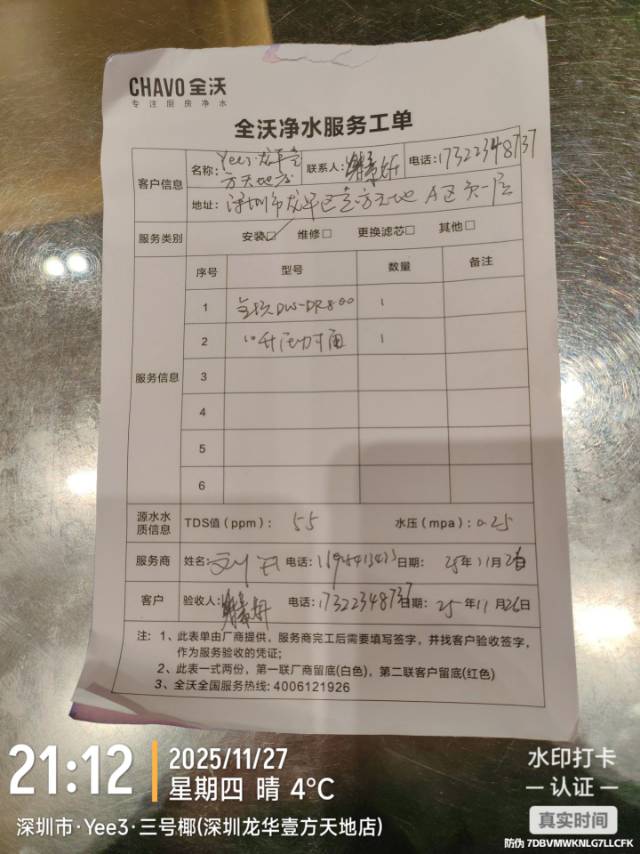 CHAVO 全沃
专注厨房净水
全沃净水服务工单
客户信息
名称: Yee3 龙华壹方天地店 联系人: 电话: 17322348737
地址: 深圳市龙华区壹方天地 A区负一层
服务类别 安装□ 维修□ 更换滤芯□ 其他□
服务信息
序号 型号 数量 备注
1 全沃DW-DR800 1
2 10升压力桶 1
3
4
5
6
源水水质信息 TDS值(ppm): 55 水压(mpa): 0.25
服务商 姓名: 电话: 日期: 25年11月26
客户 验收人: 电话: 17322348737 日期: 25年11月26日
注: 1、此表单由厂商提供,服务商完工后需要填写签字,并找客户验收签字,
作为服务验收的凭证;
2、此表一式两份,第一联厂商留底(白色),第二联客户留底(红色)
3、全沃全国服务热线: 4006121926
21:12
2025/11/27
星期四 晴 4°C
深圳市·Yee3·三号椰(深圳龙华壹方天地店)
水印打卡
认证
真实时间
防伪 7DBVMWKNLG7LLCFK